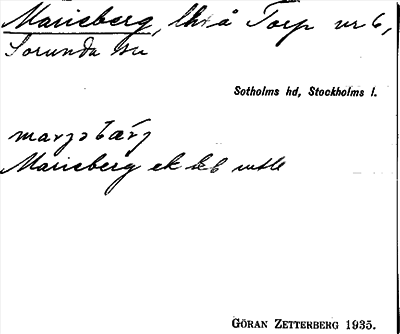 Marieberg, lht å Torp nr 6,
Sorunda sn
Sotholms hd, Stockholms l.
Marieberg ek
GÖRAN ZETTERBERG 1935.